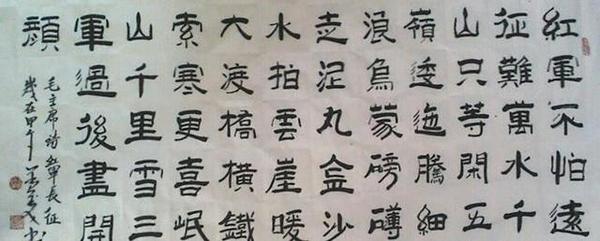 紅軍不怕遠
征難萬水千
山只等閑五
嶺逶迤騰細
浪烏蒙磅礴
走泥丸金沙
水拍雲崖暖
大渡橋橫鐵
索寒更喜岷
山千里雪三
軍過後盡開
顏
毛主席詩紅軍長征
歲在甲午